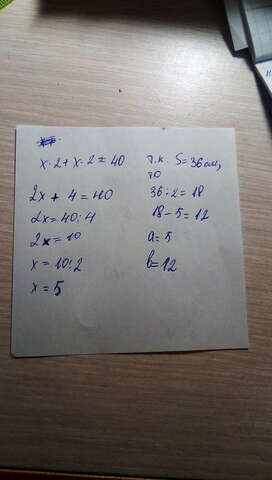 x·2+x·2=40
2x+4=40
2x=40:4
2x=10
x=10:2
x=5
т.к. S=36см,
то
36:2=18
18-5=12
a=5
b=12